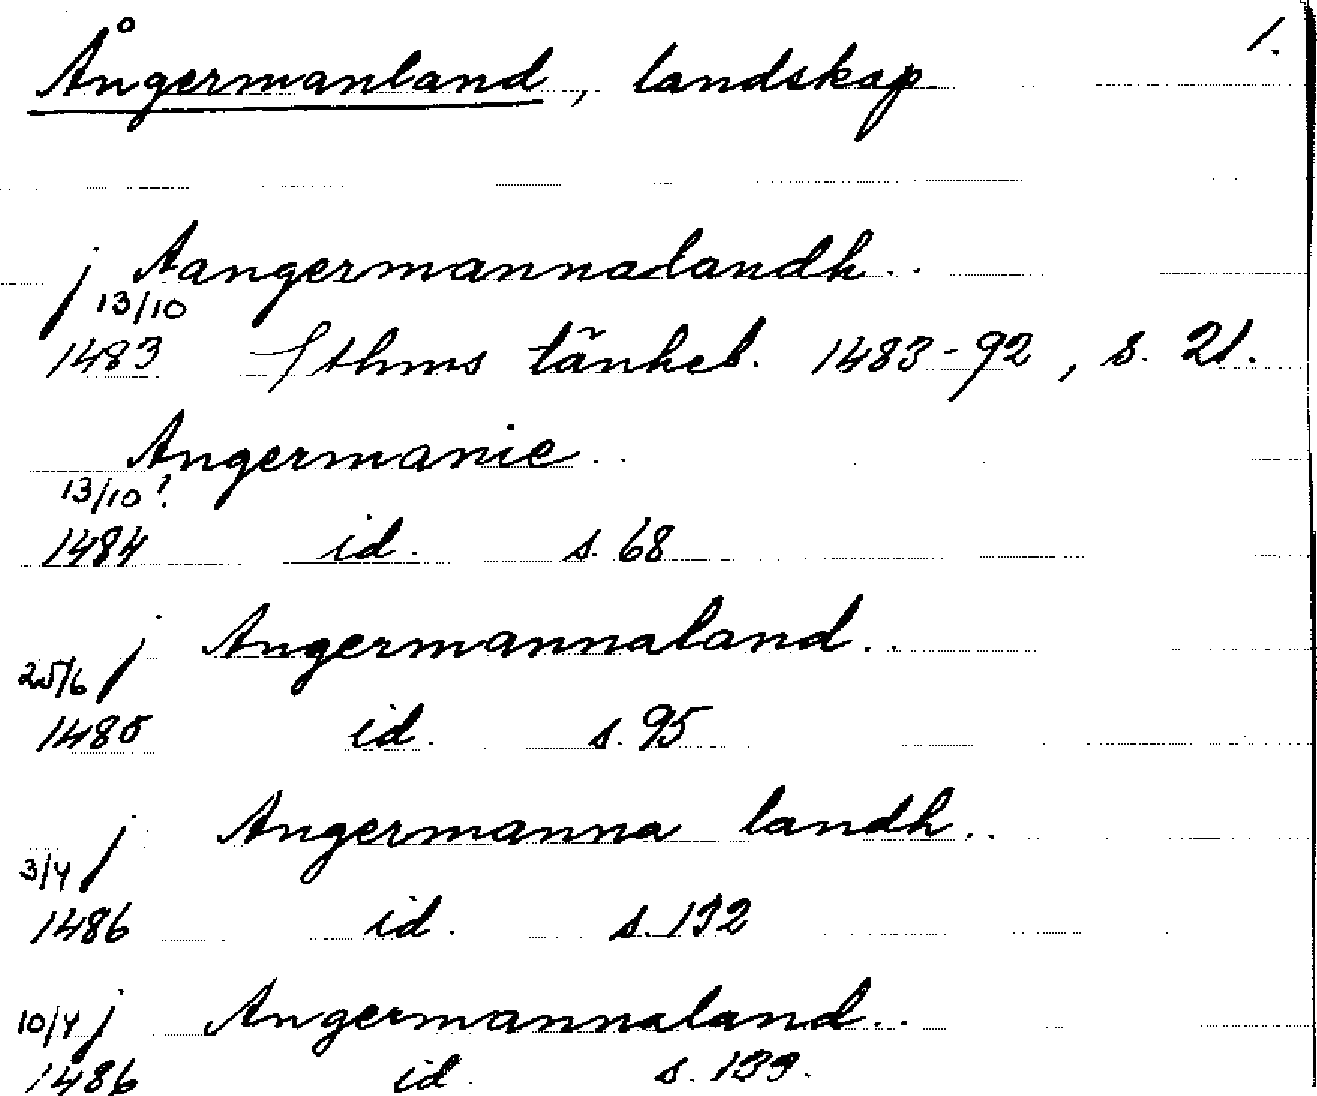 Ångermanland, landskap 1.
j Aangermannalandh..
13/10
1483 Sthms tänkeb. 1483-92, s. 21.
Angermanie..
13/10!
1484 id. s. 68
j Angermannaland..
25/6
1485 id. s. 95
j Angermanna landh..
3/4
1486 id. s. 132
10/4 j Angermannaland..
1486 id. s. 133.